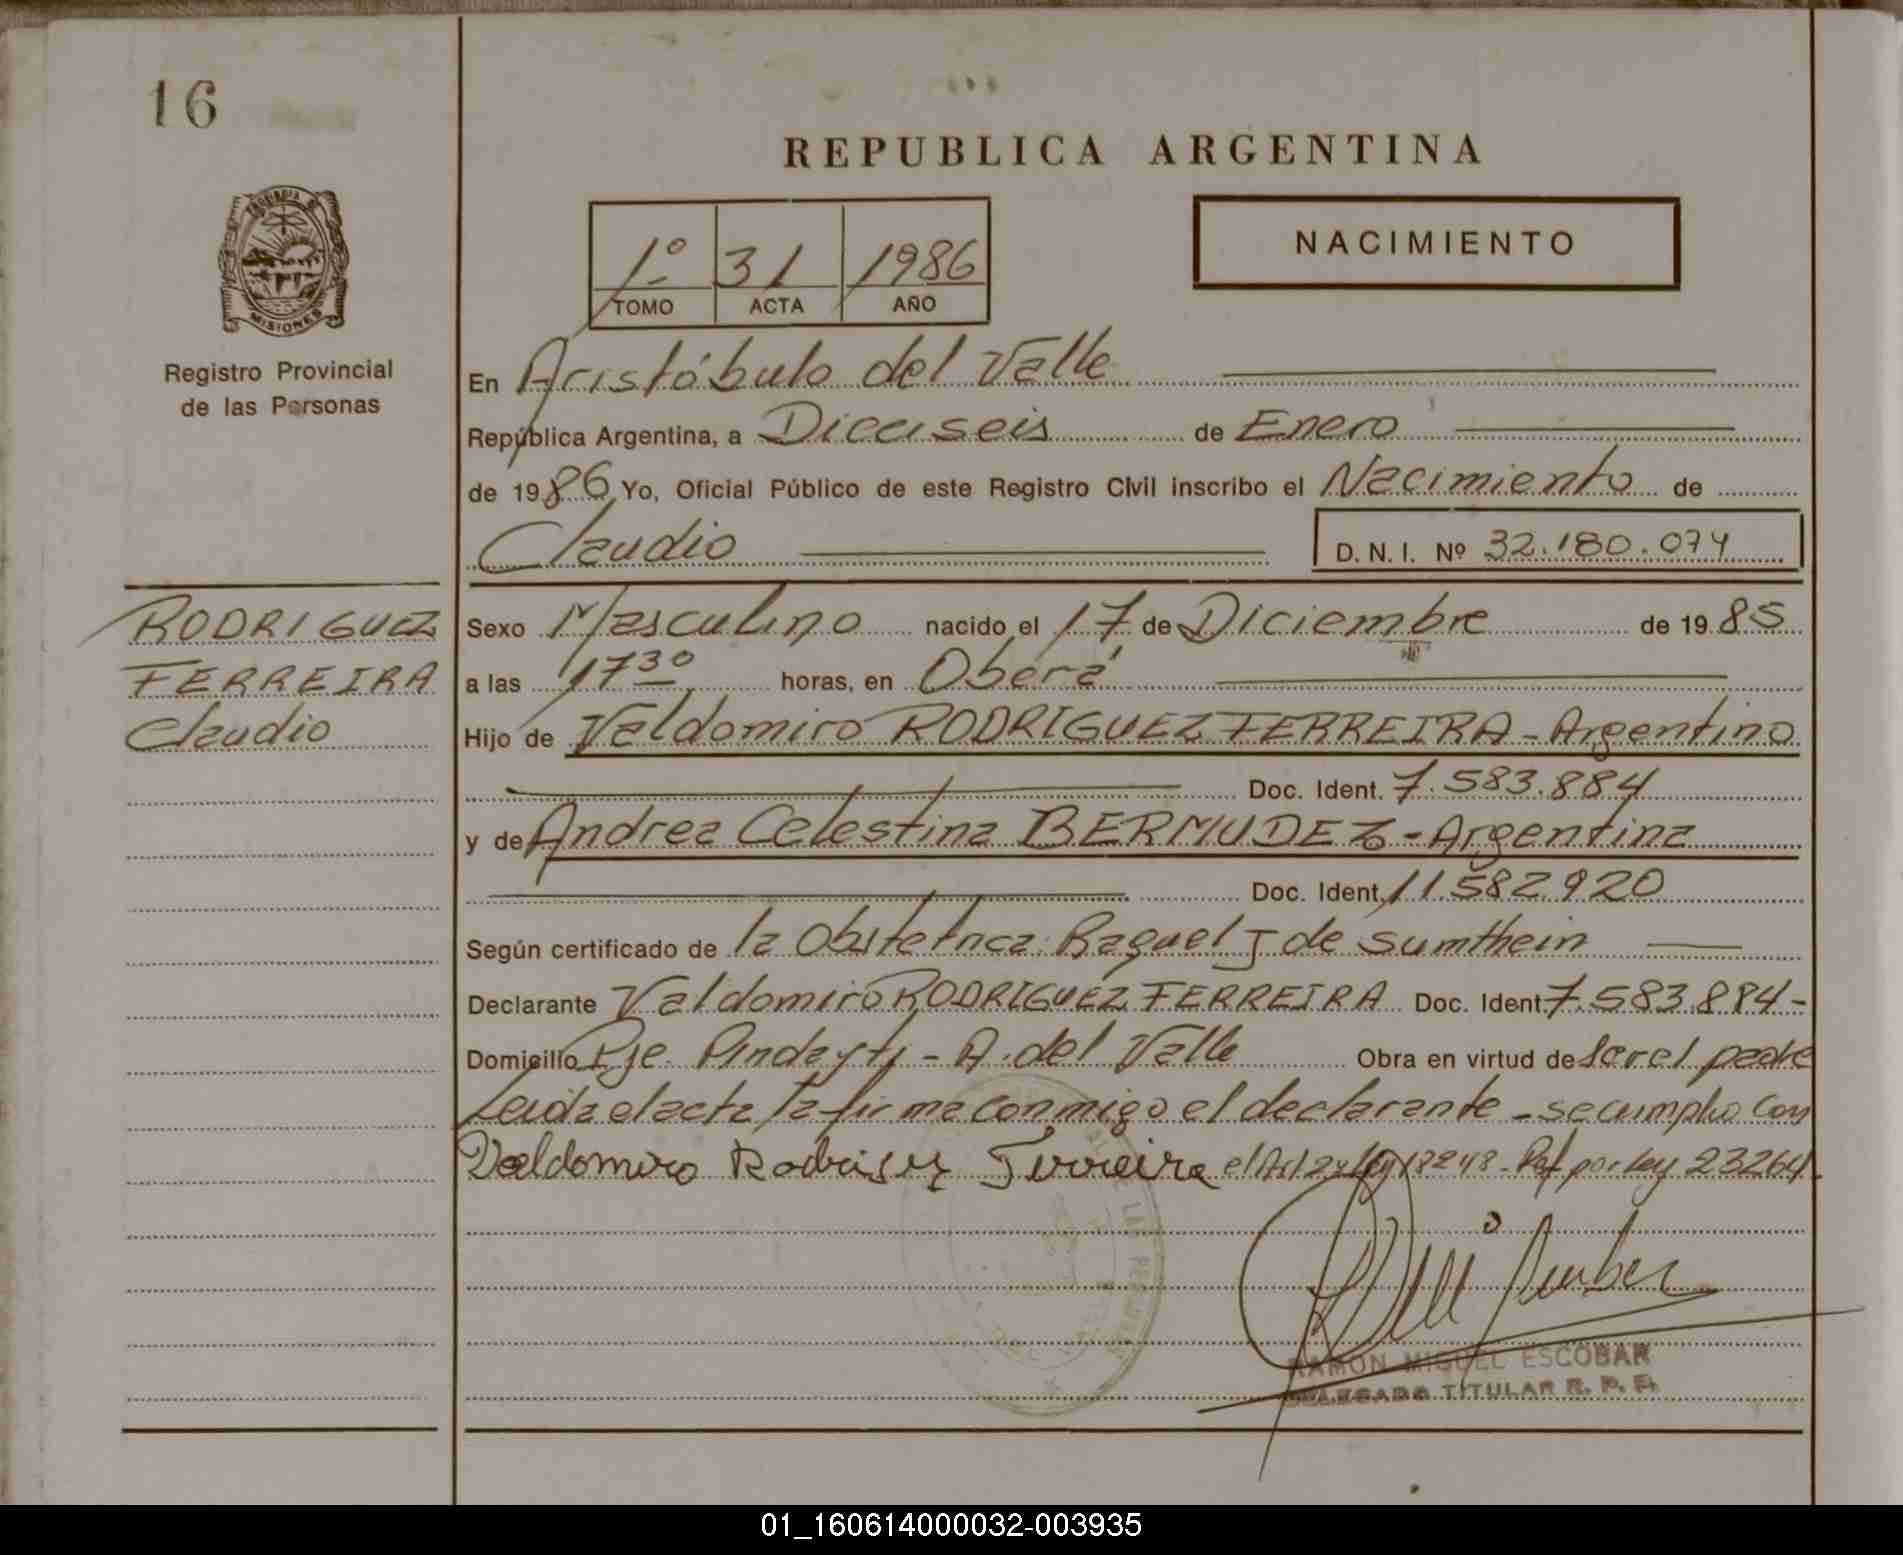 16
REPUBLICA ARGENTINA
NACIMIENTO
1º 31 1986
TOMO ACTA AÑO
MISIONES
Registro Provincial
de las Personas
En Aristóbulo del Valle
República Argentina, a Dieciseis de Enero
de 1986 Yo, Oficial Público de este Registro Civil inscribo el Nacimiento de
Claudio D. N. I. Nº 32.180.074
RODRIGUEZ
FERREIRA
Claudio
Sexo Masculino nacido el 17 de Diciembre de 1985
a las 17 30 horas, en Oberá
Hijo de Valdomiro RODRIGUEZ FERREIRA - Argentino
Doc. Ident. 7.583.884
y de Andrea Celestina BERMUDEZ - Argentina
Doc. Ident. 11.582.920
Según certificado de la Obstetrica: Raquel J de Sumthein
Declarante Valdomiro RODRIGUEZ FERREIRA Doc. Ident. 7.583.884-
Domicilio Pje. Pindayti - A. del Valle Obra en virtud de ser el padre
Leida el acta la firma conmigo el declarante - se cumplio con
Valdomiro Rodriguez Ferreira el Art 2 Ley 18248 - Ref por Ley 23264
RAMON MIGUEL ESCOBAR
DELEGADO TITULAR R. P. P.
01_160614000032-003935